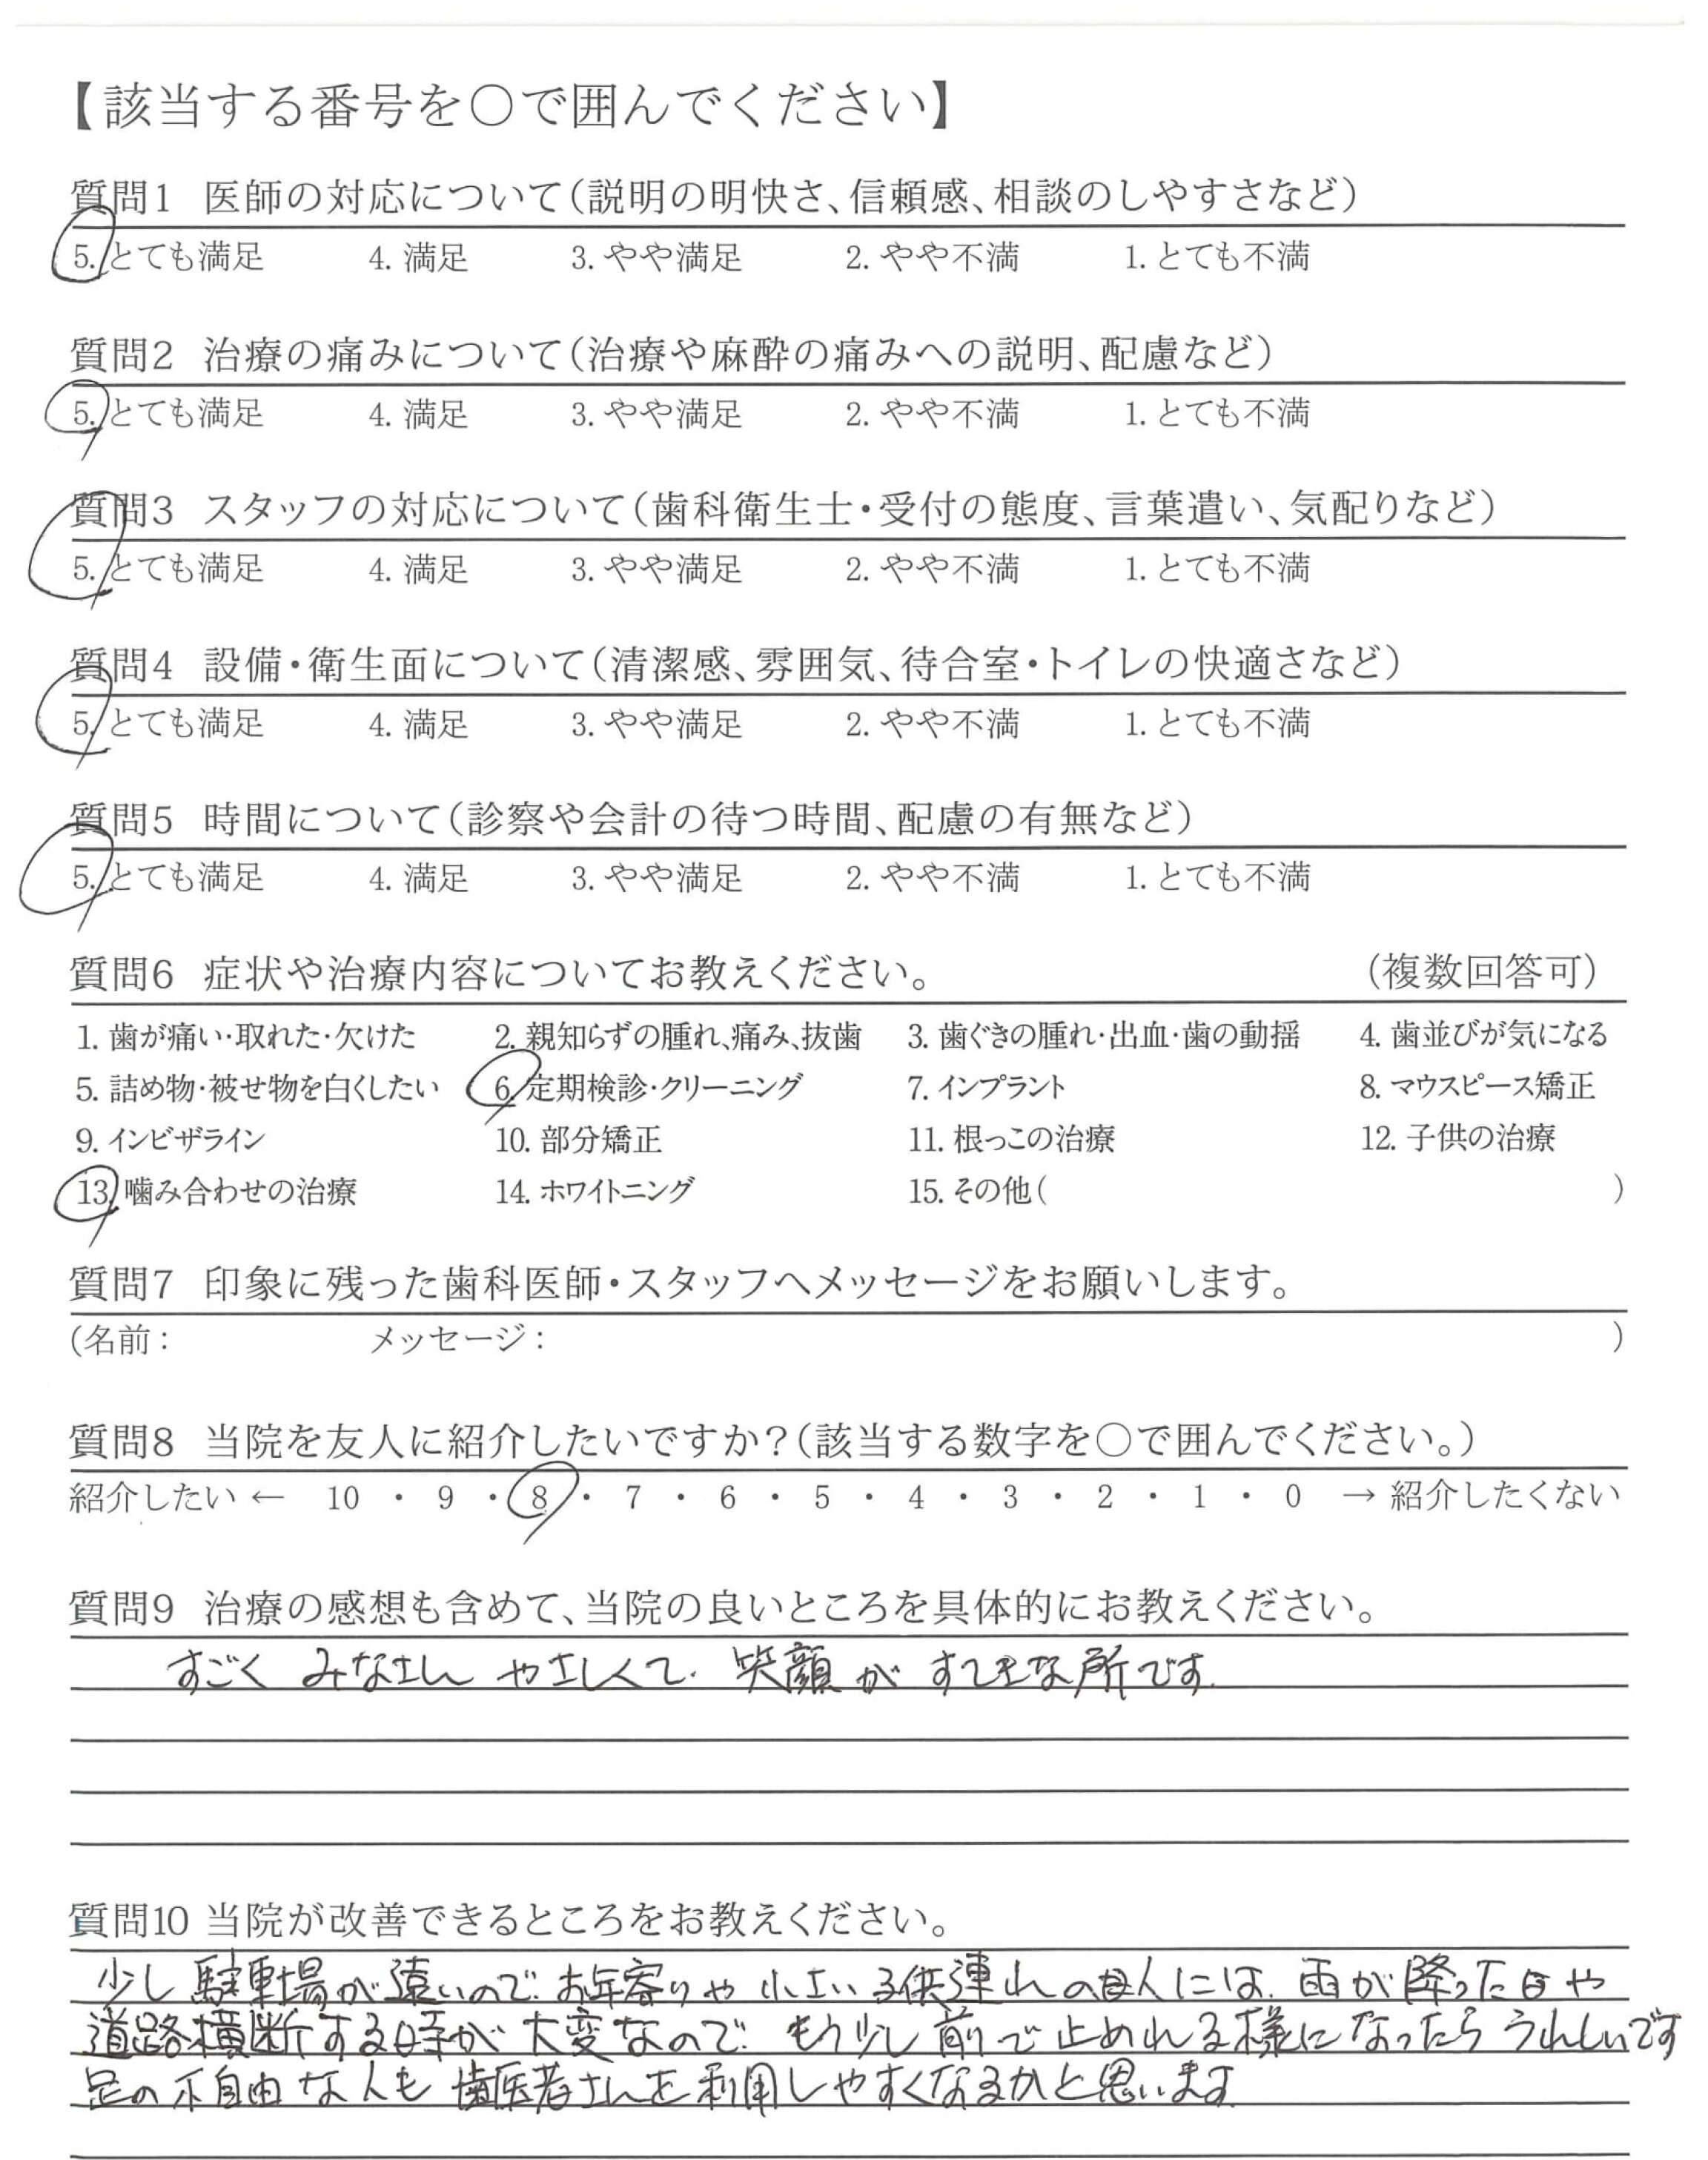 【該当する番号を○で囲んでください】
質問1 医師の対応について(説明の明快さ、信頼感、相談のしやすさなど)
5. とても満足 4. 満足 3. やや満足 2. やや不満 1. とても不満
質問2 治療の痛みについて(治療や麻酔の痛みへの説明、配慮など)
5. とても満足 4. 満足 3. やや満足 2. やや不満 1. とても不満
質問3 スタッフの対応について(歯科衛生士・受付の態度、言葉遣い、気配りなど)
5. とても満足 4. 満足 3. やや満足 2. やや不満 1. とても不満
質問4 設備・衛生面について(清潔感、雰囲気、待合室・トイレの快適さなど)
5. とても満足 4. 満足 3. やや満足 2. やや不満 1. とても不満
質問5 時間について(診察や会計の待つ時間、配慮の有無など)
5. とても満足 4. 満足 3. やや満足 2. やや不満 1. とても不満
質問6 症状や治療内容についてお教えください。 (複数回答可)
1. 歯が痛い・取れた・欠けた 2. 親知らずの腫れ、痛み、抜歯 3. 歯ぐきの腫れ・出血・歯の動揺 4. 歯並びが気になる
5. 詰め物・被せ物を白くしたい 6. 定期検診・クリーニング 7. インプラント 8. マウスピース矯正
9. インビザライン 10. 部分矯正 11. 根っこの治療 12. 子供の治療
13. 噛み合わせの治療 14. ホワイトニング 15. その他( )
質問7 印象に残った歯科医師・スタッフへメッセージをお願いします。
(名前: メッセージ: )
質問8 当院を友人に紹介したいですか?(該当する数字を○で囲んでください。)
紹介したい ← 10 ・ 9 ・ 8 ・ 7 ・ 6 ・ 5 ・ 4 ・ 3 ・ 2 ・ 1 ・ 0 → 紹介したくない
質問9 治療の感想も含めて、当院の良いところを具体的にお教えください。
すごく みなさん やさしくて、笑顔が すてきな所です。
質問10 当院が改善できるところをお教えください。
少し駐車場が遠いので、お年寄りや 小さい子供連れの母人には、雨が降った日や
道路横断する時が 大変なので、もう少し前で止めれる様になったら うれしいです
足の不自由な人も 歯医者さんを利用しやすくなるかと思います。